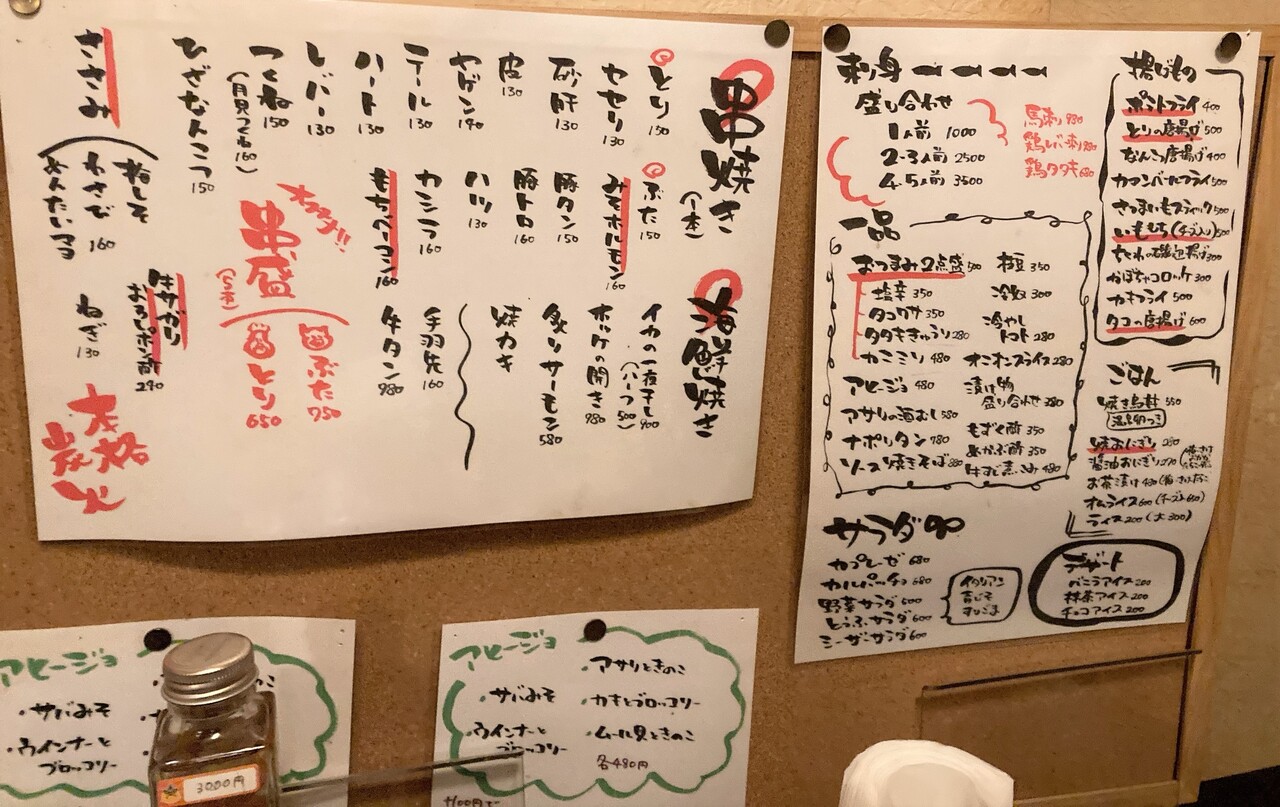 串焼き
(1本)
とり 150
セセリ 130
砂肝 130
皮 130
ヤゲン 140
テール 130
ハート 130
レバー 130
つくね 150
(月見つくね 160)
ひざなんこつ 150
ささみ
梅しそ
わさび 160
めんたいマヨ
ねぎ 130
ぶた 150
みそホルモン 160
豚タン 150
豚トロ 160
ハツ 130
カシラ 160
もちベーコン 160
手羽先 160
牛タン 980
牛サガリ
おろしポン酢 290
オススメ!!
串盛
(5本)
ぶた 750
とり 650
本格
炭火
海鮮焼き
イカの一夜干し 900
(ハーフ 500)
ホッケの開き 980
炙りサーモン 580
焼カキ
刺身
盛り合わせ
1人前 1000
2-3人前 2500
4-5人前 3500
馬刺 980
鶏レバー刺
鶏タタキ 680
一品
おつまみ2点盛 500
塩辛 350
タコワサ 350
タタキきゅうり 280
カニミソ 480
アヒージョ 480
アサリの酒むし 580
ナポリタン 780
ソース焼きそば 880
枝豆 350
冷奴 300
冷やし
トマト 280
オニオンスライス 280
漬け物
盛り合わせ 380
もずく酢 350
めかぶ酢 350
牛すじ煮こみ 480
サラダ
カプレーゼ 680
カルパッチョ 680
野菜サラダ 500
とうふサラダ 600
シーザーサラダ 600
イタリアン
青じそ
すりごま
揚げもの
ポテトフライ 400
とりの唐揚げ 500
なんこつ唐揚げ 400
カマンベールフライ 500
さつまいもスティック 500
いももち(チーズ入り) 500
ちくわの磯辺揚げ 300
かぼちゃコロッケ 300
カキフライ 500
タコの唐揚げ 600
ごはん
焼き鳥丼 550
温玉つき
焼おにぎり 290
醤油おにぎり 270
オムライス 600 (チーズ 650)
ライス 200 (大 300)
デザート
バニラアイス 200
抹茶アイス 200
チョコアイス 200
アヒージョ
・サバみそ
・ウインナーと
ブロッコリー
3000円
アヒージョ
・サバみそ
・ウインナーと
ブロッコリー
・アサリときのこ
・カキとブロッコリー
・ムール貝ときのこ
各480円